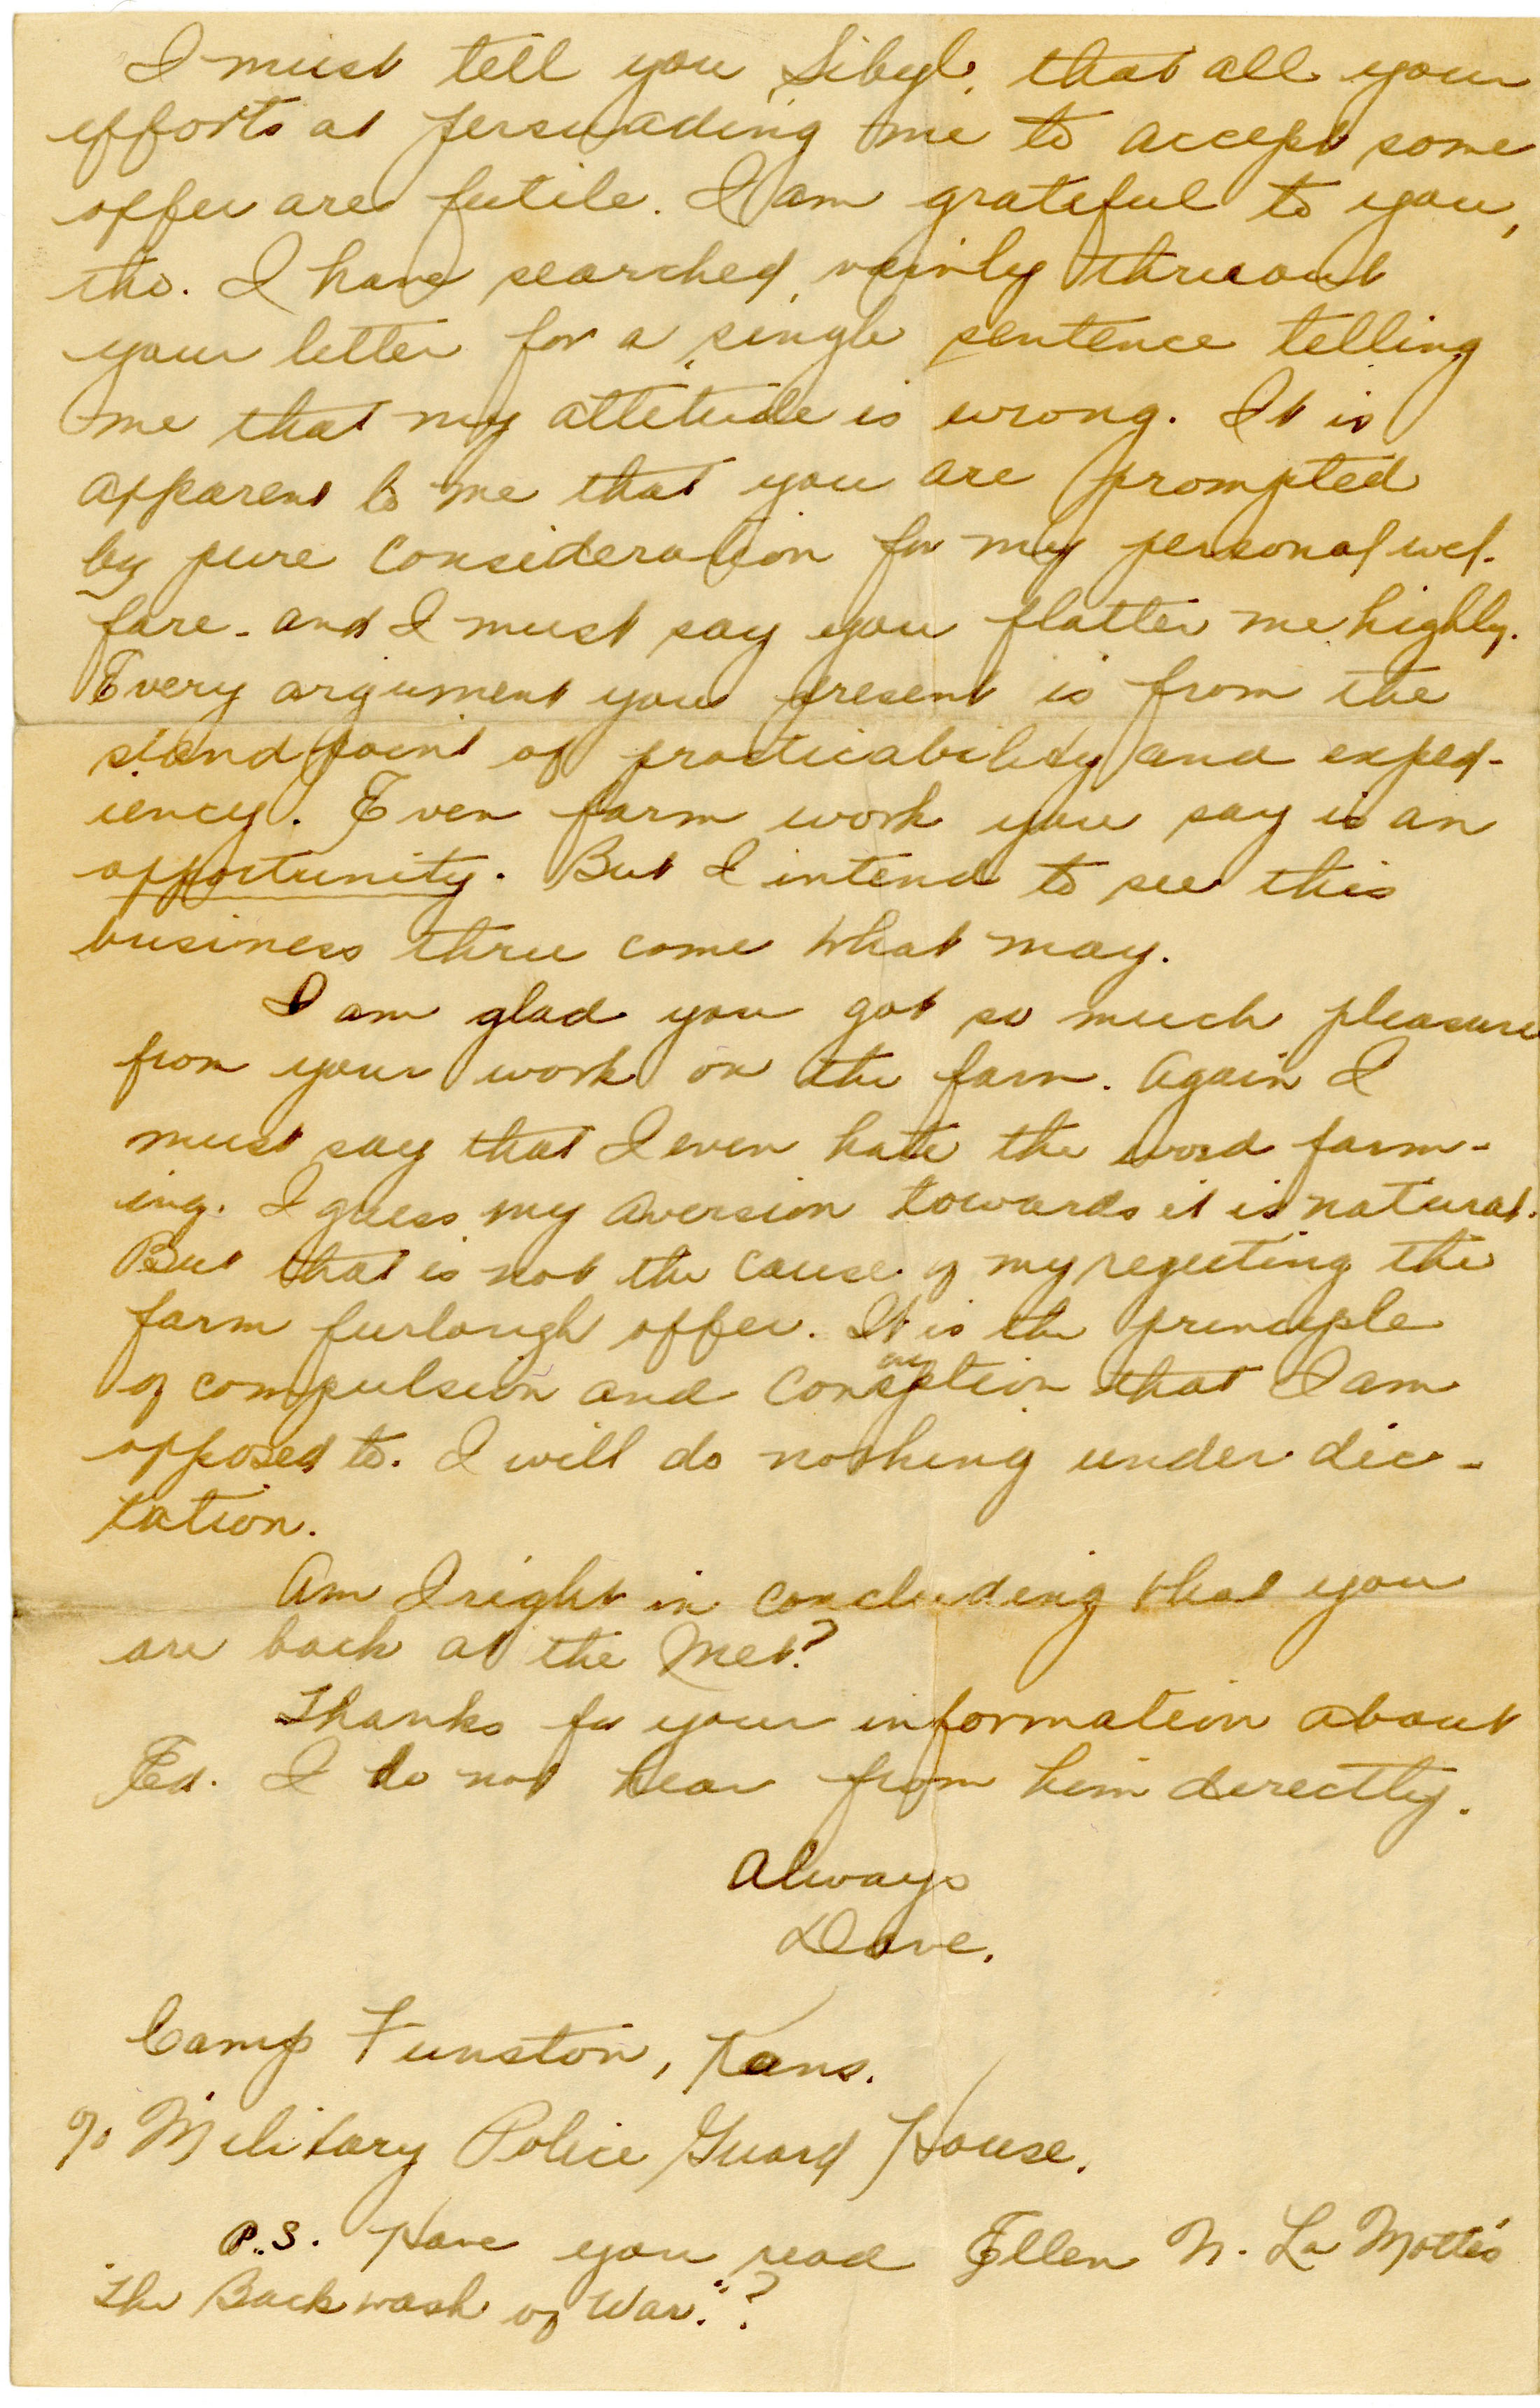 I must tell you, Sibyl, that all your
efforts at persuading me to accept some
offer are futile. I am grateful to you,
tho. I have searched vainly thruout
your letter for a single sentence telling
me that my attitude is wrong. It is
apparent to me that you are prompted
by pure consideration for my personal wel-
fare - and I must say you flatter me highly.
Every argument you present is from the
stand point of practicability and exped-
iency. Even farm work you say is an
opportunity. But I intend to see this
business thru come what may.
I am glad you got so much pleasure
from your work on the farm. Again I
must say that I even hate the word farm-
ing. I guess my aversion towards it is natural.
But that is not the cause of my rejecting the
farm furlough offer. It is the principle
of compulsion and conscription that I am
opposed to. I will do nothing under dic-
tation.
Am I right in concluding that you
are back at the Met?
Thanks for your information about
Ed. I do not hear from him directly.
Always
Dave.
Camp Funston, Kans.
% Military Police Guard House.
P.S. Have you read Ellen N. La Motte's
"The Backwash of War."?